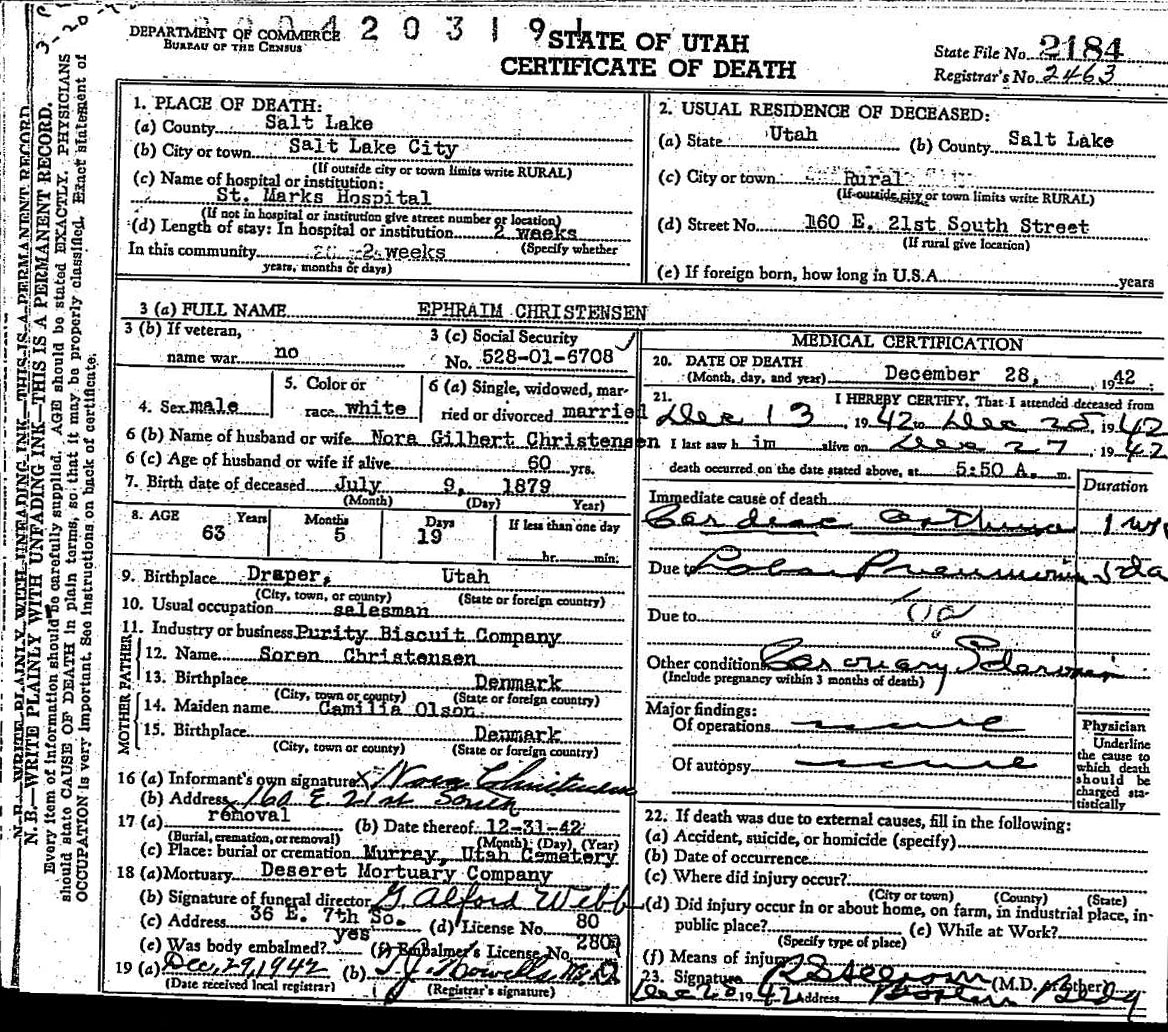 3-20-4
DEPARTMENT OF COMMERCE
BUREAU OF THE CENSUS
2042031 9
STATE OF UTAH
CERTIFICATE OF DEATH
State File No. 2184
Registrar's No. 2463
N. B.—WRITE PLAINLY WITH UNFADING INK—THIS IS A PERMANENT RECORD.
N. B.—WRITE PLAINLY WITH UNFADING INK—THIS IS A PERMANENT RECORD.
Every item of information should be carefully supplied. AGE should be stated EXACTLY. PHYSICIANS
should state CAUSE OF DEATH in plain terms, so that it may be properly classified. Exact statement of
OCCUPATION is very important. See instructions on back of certificate.
1. PLACE OF DEATH:
(a) County Salt Lake
(b) City or town Salt Lake City
(If outside city or town limits write RURAL)
(c) Name of hospital or institution:
St. Marks Hospital
(If not in hospital or institution give street number or location)
(d) Length of stay: In hospital or institution 2 weeks
In this community 2 weeks (Specify whether
years, months or days)
2. USUAL RESIDENCE OF DECEASED:
(a) State Utah (b) County Salt Lake
(c) City or town Rural
(If outside city or town limits write RURAL)
(d) Street No. 160 E. 21st South Street
(If rural give location)
(e) If foreign born, how long in U.S.A. years
3 (a) FULL NAME EPHRAIM CHRISTENSEN
3 (b) If veteran,
name war no
3 (c) Social Security
No. 528-01-6708
4. Sex male
5. Color or
race white
6 (a) Single, widowed, mar-
ried or divorced married
6 (b) Name of husband or wife Nora Gilbert Christensen
6 (c) Age of husband or wife if alive 60 yrs.
7. Birth date of deceased July 9, 1879
(Month) (Day) Year)
8. AGE Years Months Days If less than one day
63 5 19 hr. min.
9. Birthplace Draper, Utah
(City, town, or county) (State or foreign country)
10. Usual occupation salesman
11. Industry or business Purity Biscuit Company
FATHER
12. Name Soren Christensen
13. Birthplace Denmark
(City, town or county) (State or foreign country)
MOTHER
14. Maiden name Camilia Olson
15. Birthplace Denmark
(City, town or county) (State or foreign country)
16 (a) Informant's own signature x Nora Christensen
(b) Address 160 E. 21st South
17 (a) removal (b) Date thereof 12-31-42
(Burial, cremation, or removal) (Month) (Day) (Year)
(c) Place: burial or cremation Murray, Utah Cemetery
18 (a) Mortuary Deseret Mortuary Company
(b) Signature of funeral director G. Alford Webb
(c) Address 36 E. 7th So. (d) License No. 80
(e) Was body embalmed? yes (f) Embalmer's License No. 280
19 (a) Dec. 29, 1942 (b) T. J. Howells, M.D.
(Date received local registrar) (Registrar's signature)
MEDICAL CERTIFICATION
20. DATE OF DEATH
(Month, day, and year) December 28, 1942.
21. I HEREBY CERTIFY, That I attended deceased from
Dec 13, 1942 to Dec 28, 1942
I last saw h im alive on Dec 27, 1942
death occurred on the date stated above, at 5:50 A. m.
Duration
Immediate cause of death
Cardiac asthma 1 wk
Due to Lobar Pneumonia 5 da
Due to
Other condition Coronary Sclerosis
(Include pregnancy within 3 months of death)
Major findings:
Of operations none
Of autopsy none
Physician
Underline
the cause to
which death
should be
charged sta-
tistically
22. If death was due to external causes, fill in the following:
(a) Accident, suicide, or homicide (specify)
(b) Date of occurrence
(c) Where did injury occur?
(City or town) (County) (State)
(d) Did injury occur in or about home, on farm, in industrial place, in-
public place? (e) While at Work?
(Specify type of place)
(f) Means of injury
23. Signature (M.D. or other)
Dec 28 1942 Address Boston Bldg